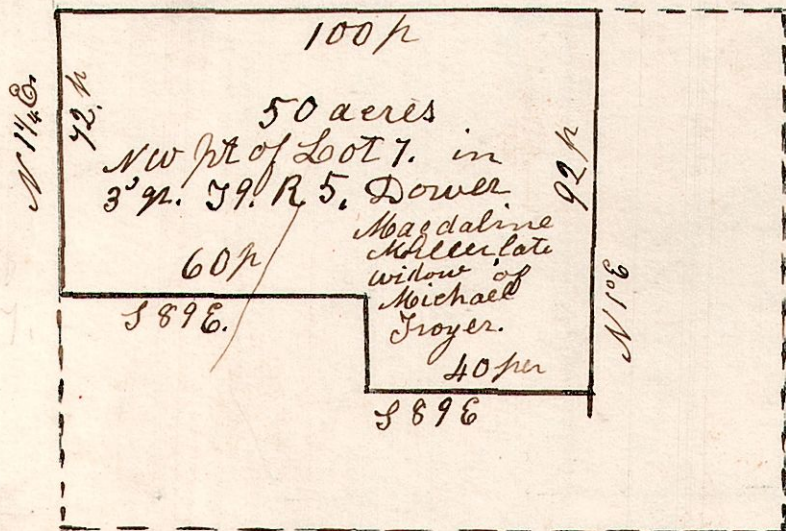 100 p
N 1¼ E.
72. p
50 acres
NW pt of Lot 7. in
3d qr. T9. R 5, Dower
Magdaline
Miller late
widow of
Michael
Troyer.
92 p
N 1° E
60 p
S 89 E.
40 per
S 89 E